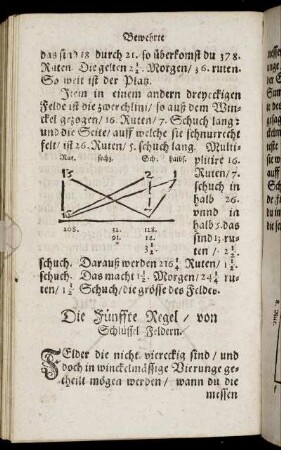 Bewehrte
das ist 18 durch 21. so überkomst du 378.
Ruten. Die gelten 2½. Morgen/ 36. ruten.
So weit ist der Platz.
Item in einem andern dreyeckigen
Felde ist die zwerchlini/ so auß dem Win-
ckel gezogen/ 16. Ruten/ 7. Schuch lang:
und die Seite/ auff welche sie schnurrecht
felt/ ist 26. Ruten/ 5. schuch lang. Multi-
Rut. sechz. Sch. halbs.
plitire 16.
Ruten/ 7.
schuch in
halb 26.
vnnd in
halb 5. das
sind 13. ru-
ten / 2½.
13 2 1
208. 32. 118.
91. 16.
3½.
schuch. Darauß werden 216¼ Ruten/ 1½.
schuch. Das macht 1½. Morgen/ 24¼ ru-
ten/ 1½ Schuch/ die grösse des Feldes.
Die Fünffte Regel/ von
Schlüssel Feldern.
FElder die nicht viereckig sind/ und
doch in winckelmässige Vierunge ge-
theilt mögen werden/ wann du die
messen